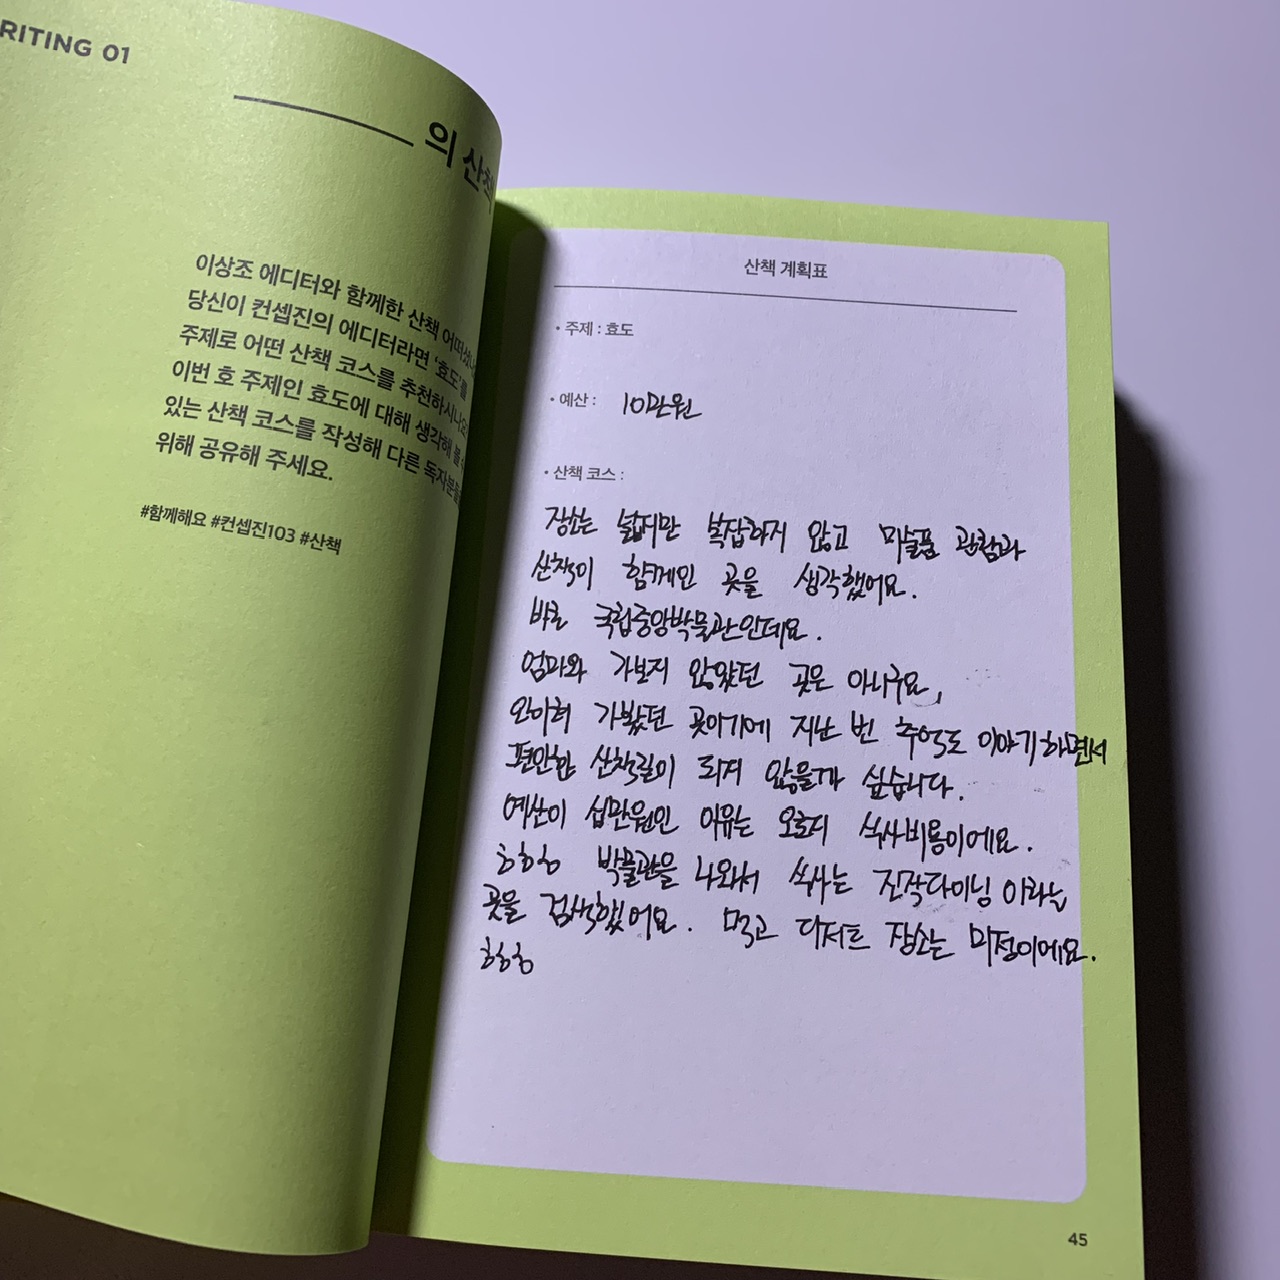 RITING 01
의 산책
이상조 에디터와 함께한 산책 어떠셨나
당신이 컨셉진의 에디터라면 '효도'를
주제로 어떤 산책 코스를 추천하시나요
이번 호 주제인 효도에 대해 생각해 볼 수
있는 산책 코스를 작성해 다른 독자분들
위해 공유해 주세요.
#함께해요 #컨셉진103 #산책
산책 계획표
• 주제 : 효도
• 예산 : 10만원
• 산책 코스 :
장소는 넓지만 복잡하지 않고 미술품 관람과
산책이 함께인 곳을 생각했어요.
바로 국립중앙박물관인데요.
엄마와 가보지 않았던 곳은 아니구요,
완이혀 가봤던 곳이기에 지난 번 추억도 이야기하면서
편안한 산책길이 되지 않을까 싶습니다.
예산이 십만원인 이유는 오로지 식사비용이에요.
하하하 박물관을 나와서 식사는 진작다이닝 이라는
곳을 검색했어요. 먹고 디저트 장소는 미정이에요.
하하하
45